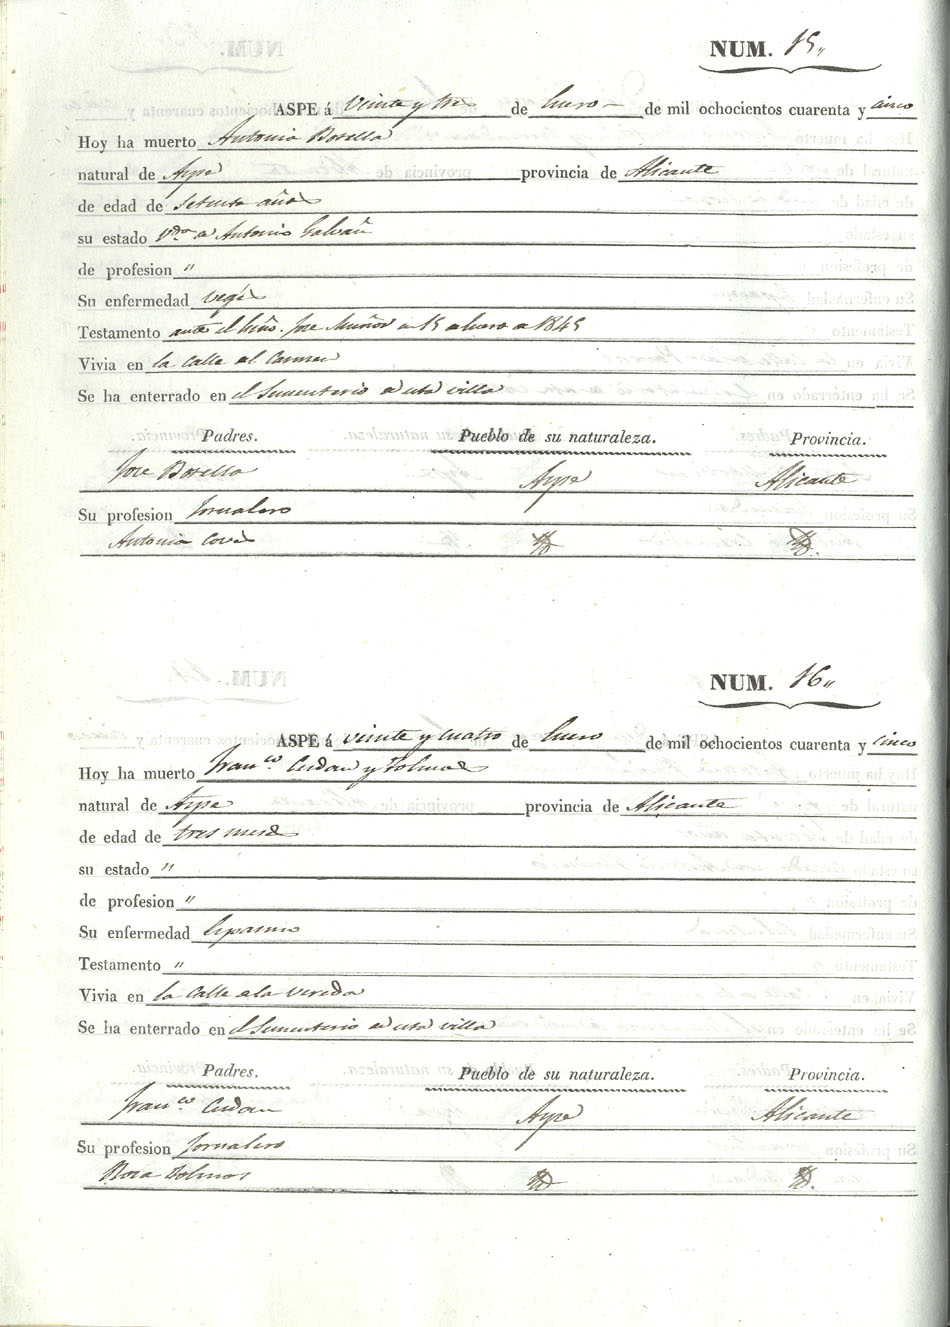 NUM. 15"
ASPE á Veinte y tres de Enero de mil ochocientos cuarenta y cinco
Hoy ha muerto Antonia Botella
natural de Aspe provincia de Alicante
de edad de Setenta años
su estado Vda de Antonio Galvañ
de profesion "
Su enfermedad Vegés
Testamento ante el Jose Muñoz en 15 de Enero de 1845
Vivia en la Calle del Carmen
Se ha enterrado en el Sementerio de esta villa
Padres. Pueblo de su naturaleza. Provincia.
Jose Botella Aspe Alicante
Su profesion Jornalero
Antonia Cove Yd Yd.
NUM. 16"
ASPE á veinte y cuatro de Enero de mil ochocientos cuarenta y cinco
Hoy ha muerto Franco. y
natural de Aspe provincia de Alicante
de edad de tres meses
su estado "
de profesion "
Su enfermedad Espasmo
Testamento "
Vivia en la Calle de la Vereda
Se ha enterrado en el Sementerio de esta villa
Padres. Pueblo de su naturaleza. Provincia.
Franco. Aspe Alicante
Su profesion Jornalero
Rosa Yd Yd.